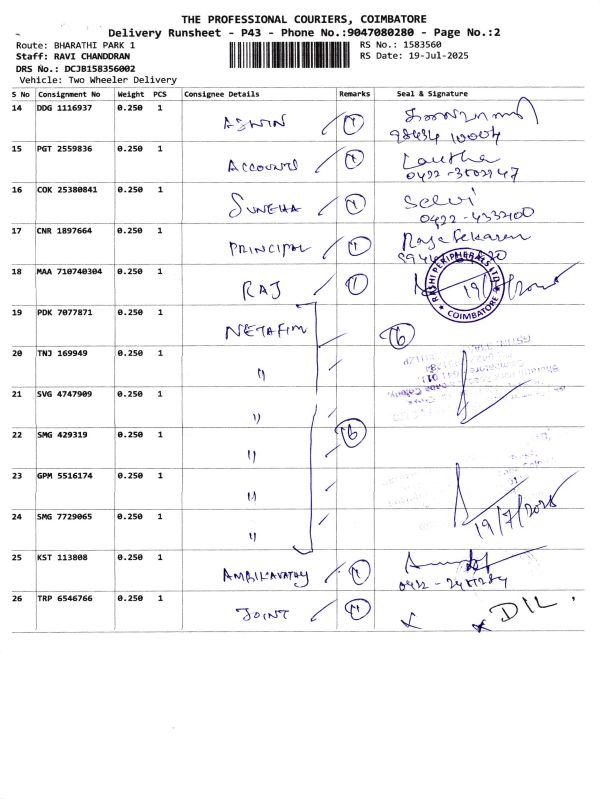 THE PROFESSIONAL COURIERS, COIMBATORE
Delivery Runsheet - P43 - Phone No.:9047080280 - Page No.:2
Route: BHARATHI PARK 1
RS No.: 1583560
Staff: RAVI CHANDDRAN
RS Date: 19-Jul-2025
DRS No.: DCJB158356002
Vehicle: Two Wheeler Delivery
S No Consignment No Weight PCS Consignee Details Remarks Seal & Signature
14 DDG 1116937 0.250 1 ASWIN
98434 10004
15 PGT 2559836 0.250 1 ACCOUNTS Lavtha
0422-3502247
16 COK 25380841 0.250 1 SUNEHA Selvi
0422-4332400
17 CNR 1897664 0.250 1 PRINCIPAL Raja Sekaran
18 MAA 710740304 0.250 1 RAJ 1
RASHI PERIPHERALS LTD. COIMBATORE
19 PDK 7077871 0.250 1 NETAFIM 6
20 TNJ 169949 0.250 1 "
21 SVG 4747909 0.250 1 "
22 SMG 429319 0.250 1 " 6
23 GPM 5516174 0.250 1 "
24 SMG 7729065 0.250 1 " 19/7/2025
25 KST 113808 0.250 1 AMBIKAVATHY
26 TRP 6546766 0.250 1 JOINT x x DIL